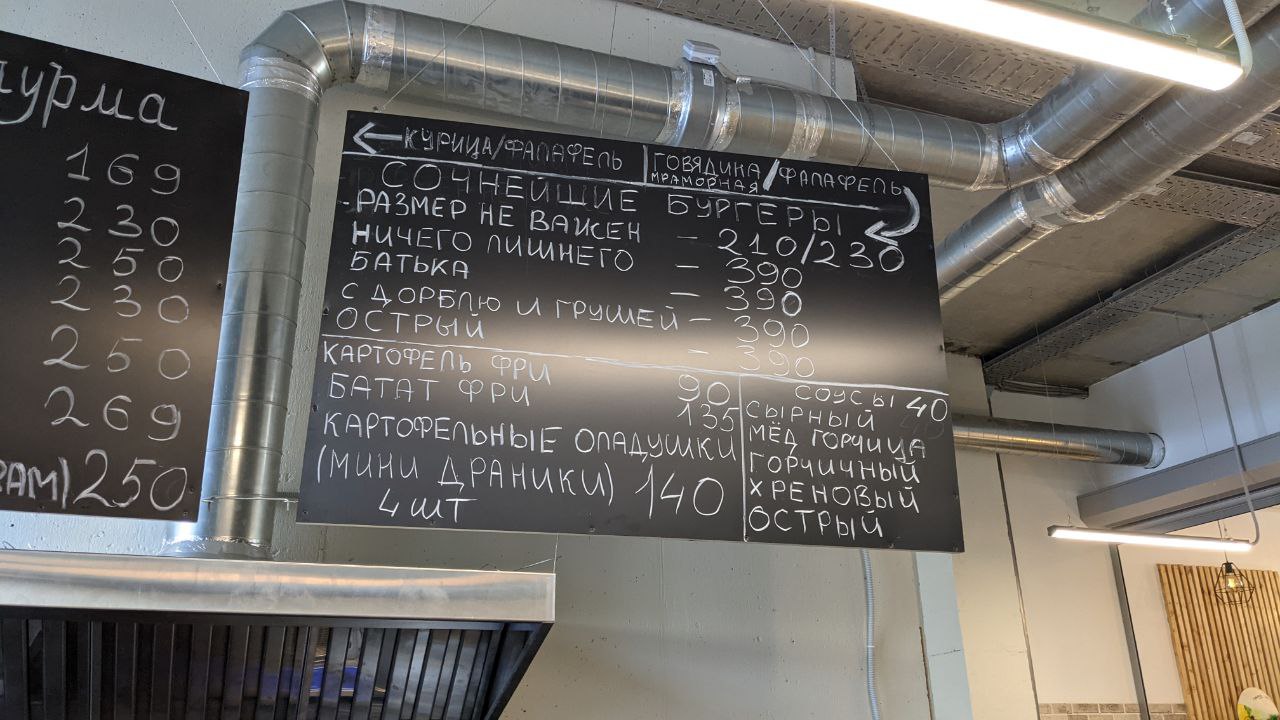 урма
169
230
250
230
250
269
250
← КУРИЦА/ФАЛАФЕЛЬ | ГОВЯДИНА МРАМОРНАЯ/ФАЛАФЕЛЬ
СОЧНЕЙШИЕ БУРГЕРЫ
РАЗМЕР НЕ ВАЖЕН – 210/230
НИЧЕГО ЛИШНЕГО – 390
БАТЬКА – 390
С ДОРБЛЮ И ГРУШЕЙ – 390
ОСТРЫЙ – 390
КАРТОФЕЛЬ ФРИ 90
БАТАТ ФРИ 135
КАРТОФЕЛЬНЫЕ ОЛАДУШКИ
(МИНИ ДРАНИКИ) 140
4 ШТ
СОУСЫ 40
СЫРНЫЙ
МЁД ГОРЧИЦА
ГОРЧИЧНЫЙ
ХРЕНОВЫЙ
ОСТРЫЙ